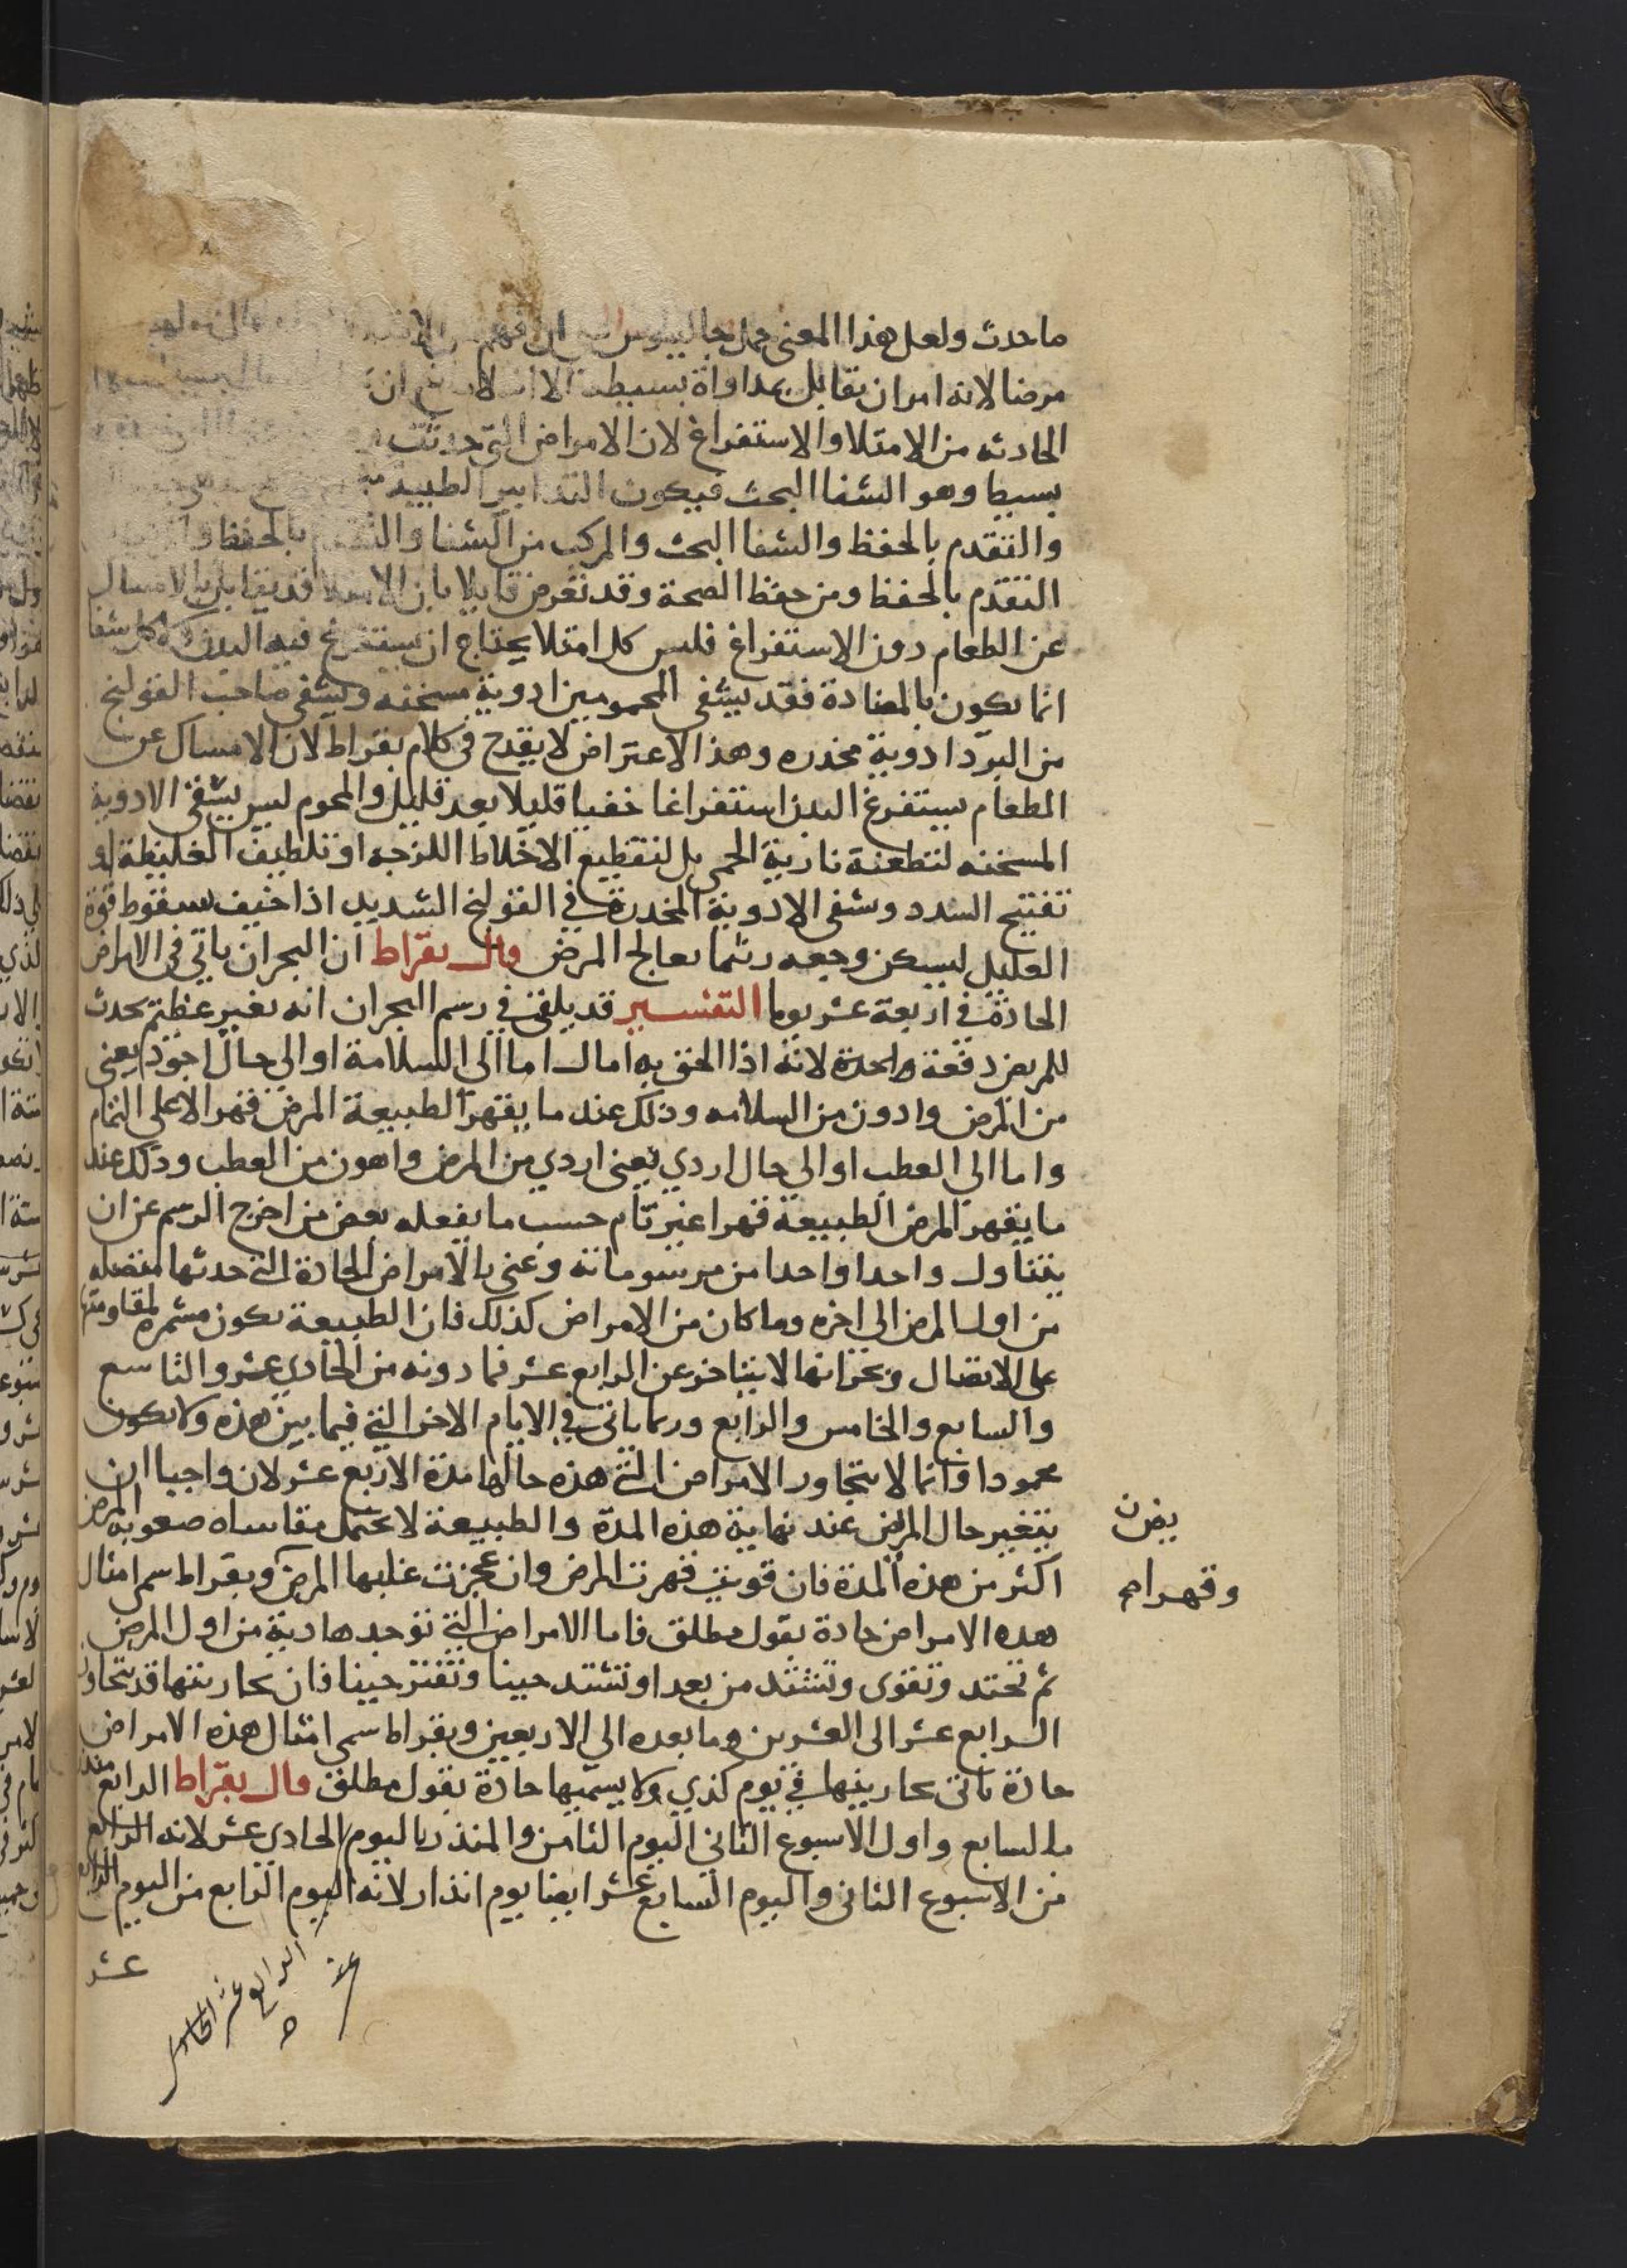 ما حدث ولعل هذا المعنى حمل جالينوس ان فهم
مرضا لانه امران يقابل بمداواة بسيطة الا ان
الحادثه من الامتلا والاستفراغ لان الامراض التي حدثت
بسيطا وهو الشفا البحث فيكون التدابير الطبية
والتقدم بالحفظ والشفا البحث والمركب من الشفا والتقدم بالحفظ
التقدم بالحفظ ومن حفظ الصحة وقد تعرض قايلا بان الامتلا قد يقابل بالامساك
عن الطعام دون الاستفراغ فليس كل امتلا يحتاج ان يستفرغ فيه البدن كل شفا
انما يكون بالمضادة فقد يشفى المحمومين ادوية مسخنه ويشفى صاحب القولنج
من البرد ادوية مخدره وهذا الاعتراض لا يقدح في كلام بقراط لان الامساك عن
الطعام يستفرغ البدن استفراغا خفيا قليلا بعد قليل والمحموم ليس يشفى الادوية
المسخنه لتطعنة نارية الحمى بل لتقطيع الاخلاط اللزجه او تلطيف الغليظة او
تفتيح السدد وشفى الادوية المخدرة في القولنج الشديد اذا خيف سقوط قوة
العليل ليسكن وجعه ريثما يعالج المرض قال بقراط ان البحران ياتي في الامراض
الحادة في اربعة عشر يوما التفسير قد يلقى في رسم البحران انه تغير عظيم يحدث
للمريض دفعة واحدة لانه اذا الحق به امال اما الى السلامة او الى حال اجود يعني
من المرض وادون من السلامه وذلك عند ما يقهر الطبيعة المرض قهرا لا على التمام
واما الى العطب او الى حال اردي يعني اردي من المرض واهون من العطب وذلك عند
ما يقهر المرض الطبيعة قهرا غير تام حسب ما يفعله بعض من اخرج الرسم عن ان
يتناول واحدا واحدا من مرسوماته وعنى بالامراض الحادة التي حدثها متصله
من اول المرض الى اخره وما كان من الامراض كذلك فان الطبيعة يكون مشمره لمقاومتها
على الاتصال وبحرانها لا يتاخر عن الرابع عشر فما دونه من الحادي عشر والتاسع
والسابع والخامس والرابع وربما ياتى في الايام الاخر التي فيما بين هذه ولا يكون
محمودا وانما لا يتجاوز الامراض التي هذه حالها مدة الاربع عشر لان واجبا ان
يتغير حال المرض عند نهاية هذه المدة والطبيعة لا تحتمل مقاساه صعوبه المرض
اكثر من هذه المدة فان قويت قهرت المرض وان عجزت غلبها المرض وبقراط سمى امثال
هذه الامراض حادة بقول مطلق فاما الامراض التي توجد هادية من اول المرض
ثم تحتد وتقوى وتشتد من بعد او تشتد حينا وتفتر حينا فان بحارينها قد يتجاوز
الرابع عشر الى العشرين وما بعده الى الاربعين وبقراط سمى امثال هذه الامراض
حادة ياتى بحارينها في يوم كذى ولا يسميها حادة بقول مطلق قال بقراط الرابع منذر
بالسابع واول الاسبوع الثاني اليوم الثامن والمنذر باليوم الحادي عشر لانه الرابع
من الاسبوع الثاني واليوم السابع عشر ايضا يوم انذار لانه اليوم الرابع من اليوم الرابع
عشر
الرابع عشر